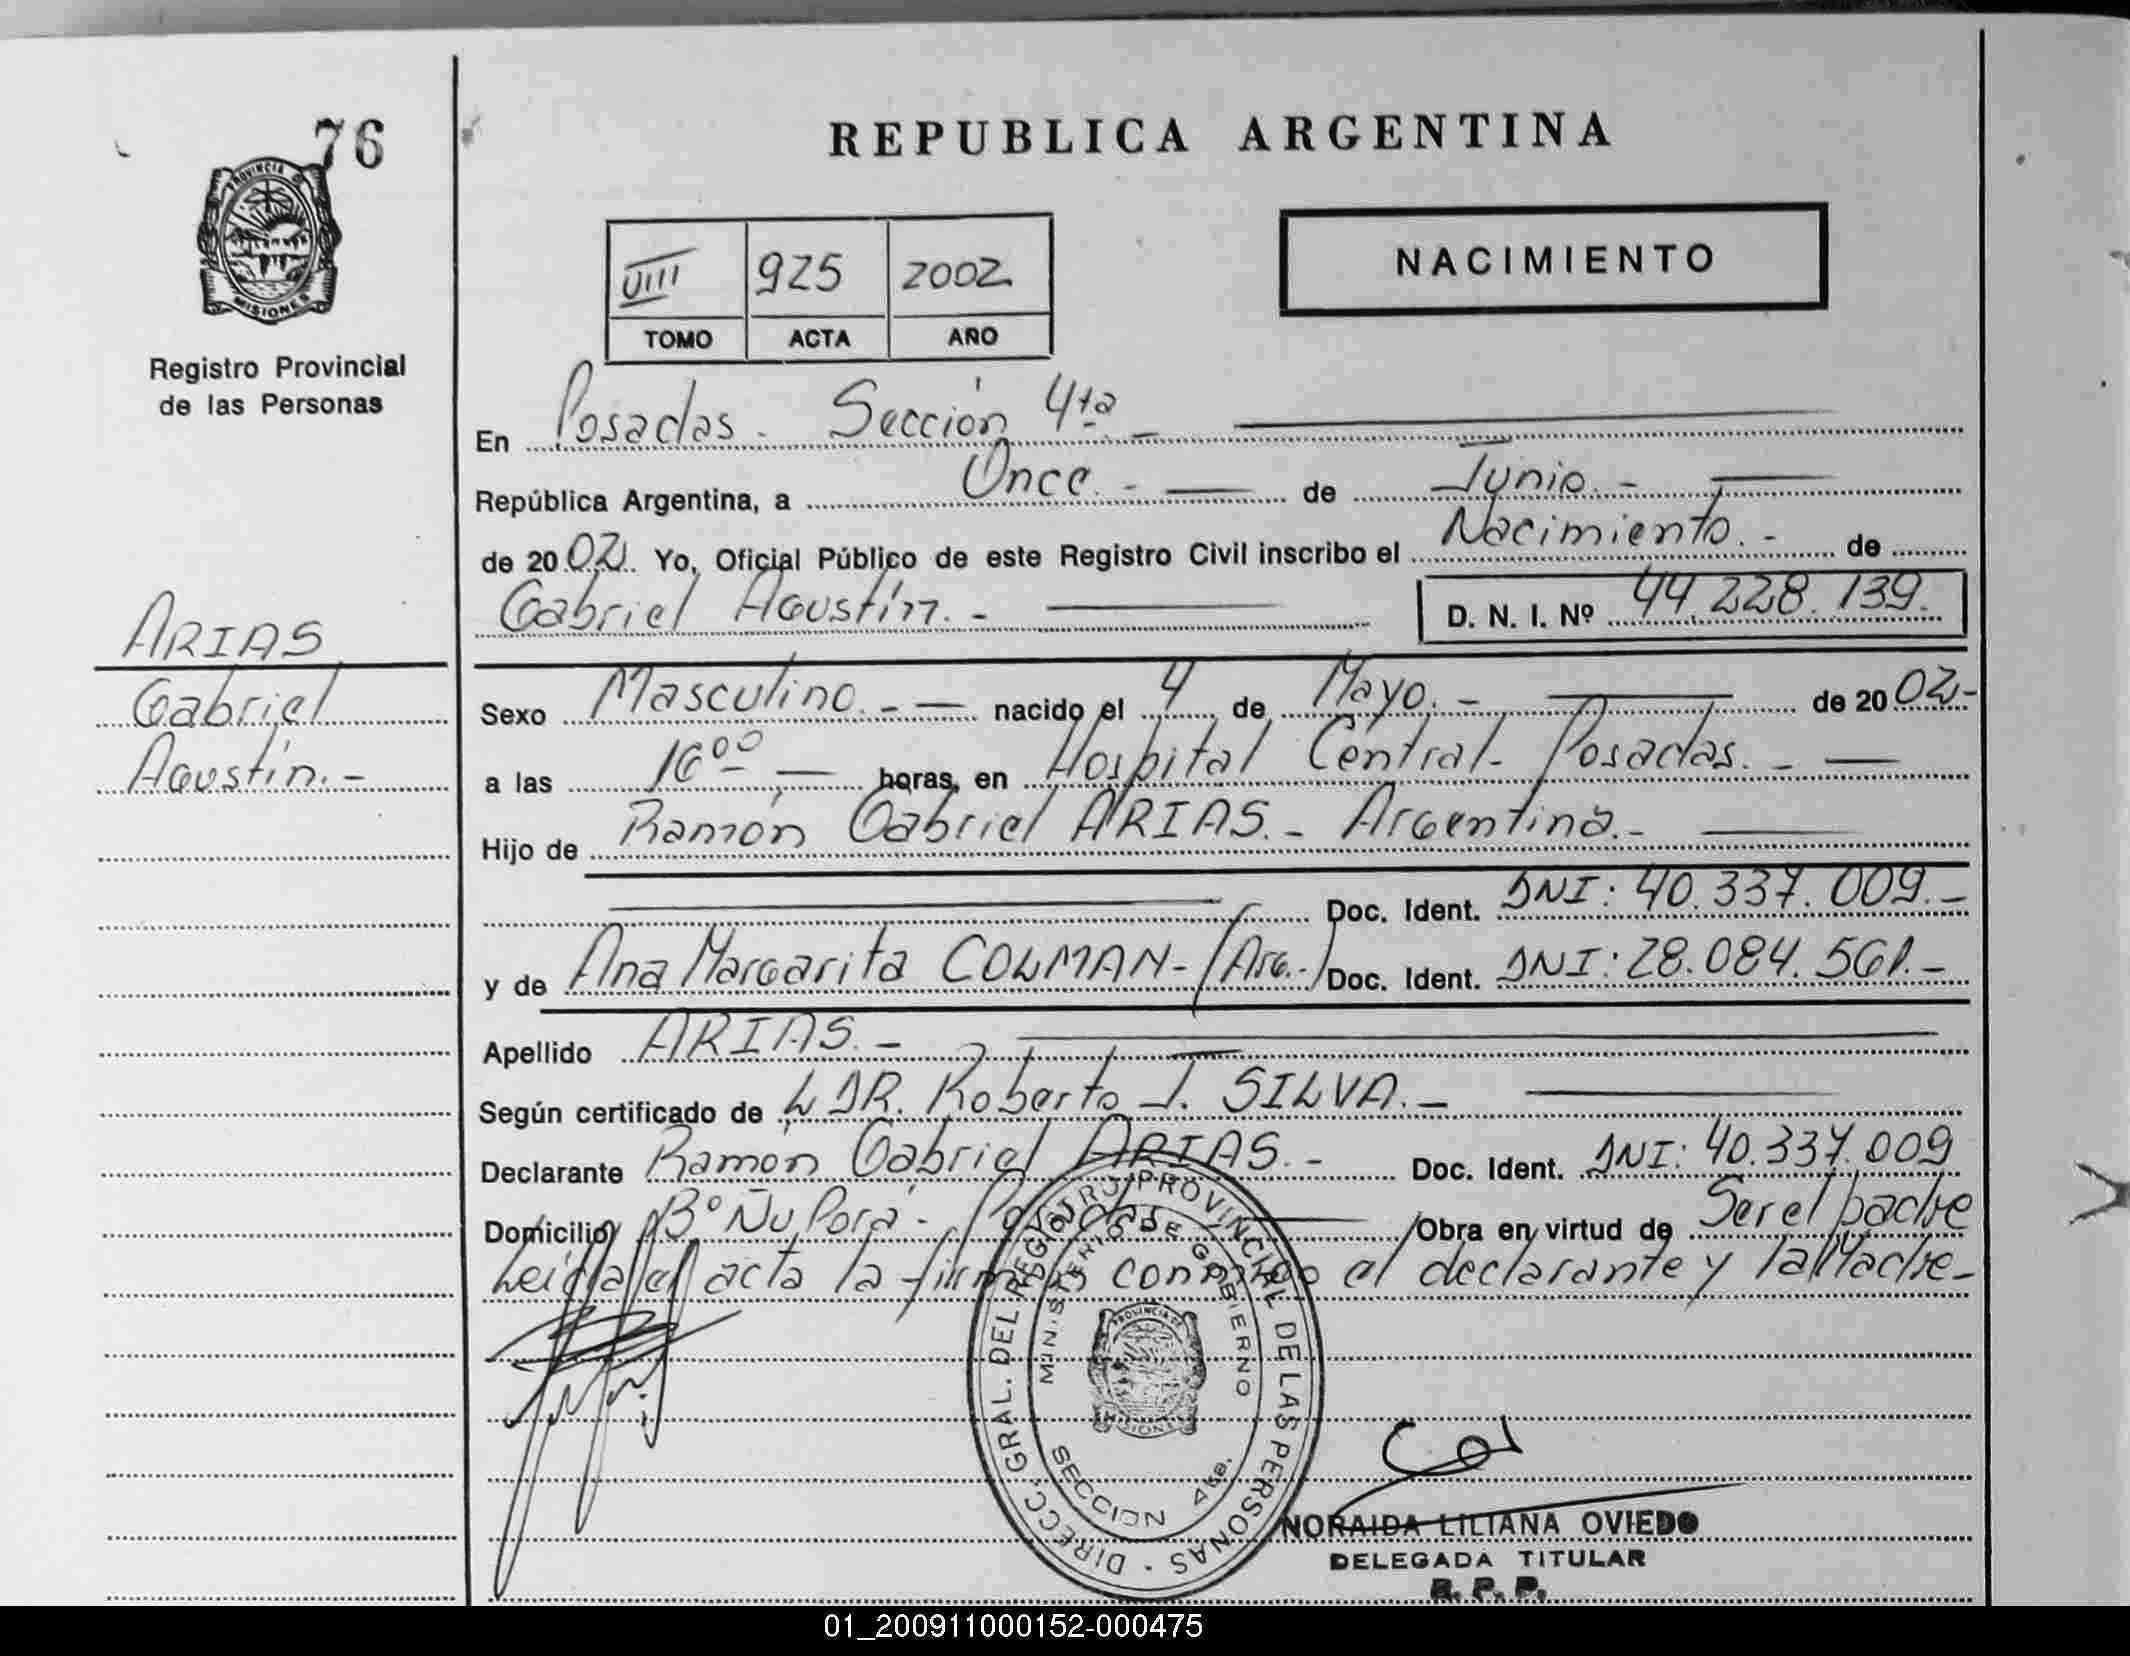 76
PROVINCIA DE
MISIONES
Registro Provincial
de las Personas
ARIAS
Gabriel
Agustín.-
REPUBLICA ARGENTINA
NACIMIENTO
VIII 925 2002
TOMO ACTA AÑO
En Posadas - Sección 4ta -
República Argentina, a Once.- de Junio.-
de 2002. Yo, Oficial Público de este Registro Civil inscribo el Nacimiento.- de
Gabriel Agustín.- D. N. I. Nº 44.228.139.
Sexo Masculino.- nacido el 4 de Mayo.- de 2002-
a las 16⁰⁰ horas, en Hospital Central - Posadas.-
Hijo de Ramón Gabriel ARIAS.- Argentina.-
Doc. Ident. DNI: 40.337.009.-
y de Ana Margarita COLMAN-(Arg.-) Doc. Ident. DNI: 28.084.561.-
Apellido ARIAS.-
Según certificado de L DR. Roberto J. SILVA.-
Declarante Ramón Gabriel ARIAS.- Doc. Ident. DNI: 40.337.009
Domicilio Bº Ñu Porá - Posadas Obra en virtud de Ser el padre
Leída el acta la firman conmigo el declarante y la Madre-
DIRECC. GRAL. DEL REGISTRO PROVINCIAL DE LAS PERSONAS -
MINISTERIO DE GOBIERNO
PROVINCIA DE
MISIONES
SECCION 4ta.
NORAIDA LILIANA OVIEDO
DELEGADA TITULAR
R. P. P.
01_200911000152-000475